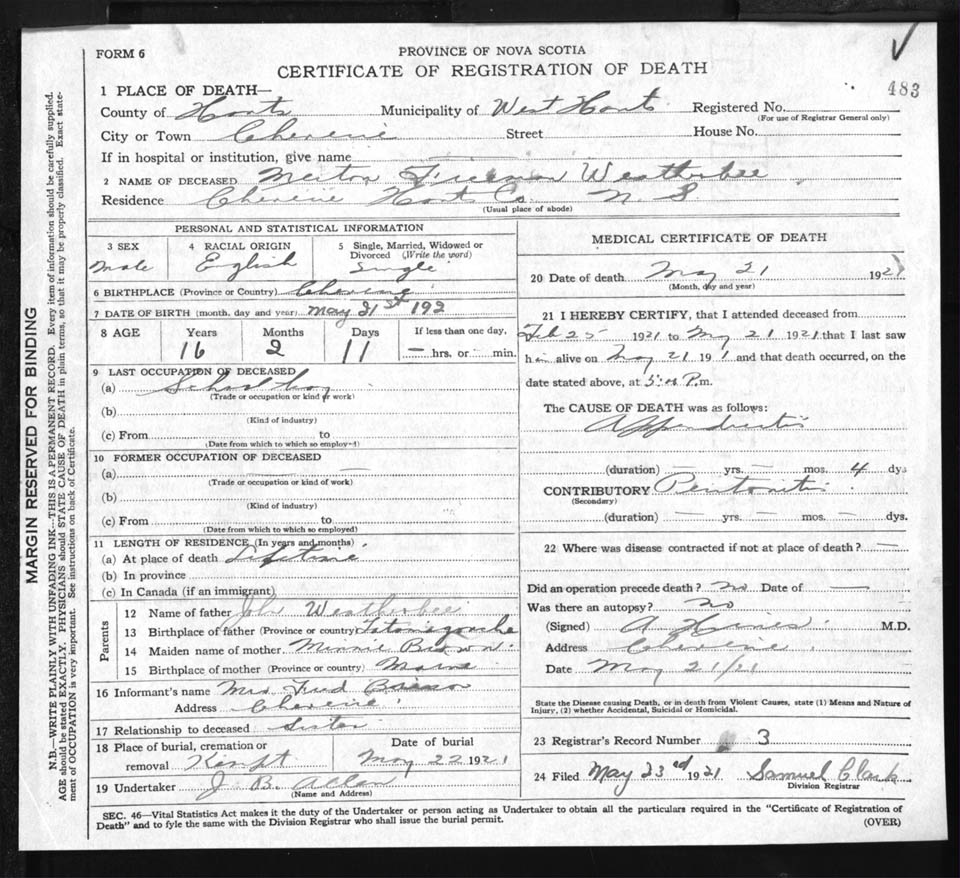 FORM 6
PROVINCE OF NOVA SCOTIA
CERTIFICATE OF REGISTRATION OF DEATH
483
1 PLACE OF DEATH—
County of Hants Municipality of West Hants Registered No.
(For use of Registrar General only)
City or Town Cheverie Street House No.
If in hospital or institution, give name
2 NAME OF DECEASED Merton Freeman Weatherbee
Residence Cheverie Hants Co. N. S.
(Usual place of abode)
PERSONAL AND STATISTICAL INFORMATION
3 SEX 4 RACIAL ORIGIN 5 Single, Married, Widowed or Divorced (Write the word)
Male English Single
6 BIRTHPLACE (Province or Country) Cheverie
7 DATE OF BIRTH (month, day and year) May 21st 192
8 AGE Years Months Days If less than one day,
16 2 11 — hrs. or — min.
9 LAST OCCUPATION OF DECEASED
(a) School boy
(Trade or occupation or kind of work)
(b)
(Kind of industry)
(c) From to
(Date from which to which so employed)
10 FORMER OCCUPATION OF DECEASED
(a) — —
(Trade or occupation or kind of work)
(b)
(Kind of industry)
(c) From to
(Date from which to which so employed)
11 LENGTH OF RESIDENCE (In years and months)
(a) At place of death Lifetime
(b) In province
(c) In Canada (if an immigrant)
Parents
12 Name of father John Weatherbee
13 Birthplace of father (Province or country) Tatamagouche
14 Maiden name of mother Minnie Brown
15 Birthplace of mother (Province or country) Maine
16 Informant's name Mrs Fred
Address Cheverie
17 Relationship to deceased Sister
18 Place of burial, cremation or removal Kempt
Date of burial May 22 1921
19 Undertaker J. B. Allan
(Name and Address)
MEDICAL CERTIFICATE OF DEATH
20 Date of death May 21 1921
(Month, day and year)
21 I HEREBY CERTIFY, that I attended deceased from
Feb 25 1921 to May 21 1921 that I last saw
him alive on May 21 191 and that death occurred, on the
date stated above, at P.m.
The CAUSE OF DEATH was as follows:
Appendicitis
(duration) — yrs. — mos. 4 dys
CONTRIBUTORY Peritonitis
(Secondary)
(duration) — yrs. — mos. — dys.
22 Where was disease contracted if not at place of death? —
Did an operation precede death? No Date of —
Was there an autopsy? No
(Signed) A Hines M.D.
Address Cheverie
Date May 21/21
State the Disease causing Death, or in death from Violent Causes, state (1) Means and Nature of
Injury, (2) whether Accidental, Suicidal or Homicidal.
23 Registrar's Record Number 3
24 Filed May 23rd 1921 Samuel Clark
Division Registrar
SEC. 46—Vital Statistics Act makes it the duty of the Undertaker or person acting as Undertaker to obtain all the particulars required in the "Certificate of Registration of
Death" and to fyle the same with the Division Registrar who shall issue the burial permit. (OVER)
MARGIN RESERVED FOR BINDING
N.B.—WRITE PLAINLY WITH UNFADING INK—THIS IS A PERMANENT RECORD. Every item of information should be carefully supplied.
AGE should be stated EXACTLY. PHYSICIANS should STATE CAUSE OF DEATH in plain terms, so that it may be properly classified. Exact state-
ment of OCCUPATION is very important. See instructions on back of Certificate.